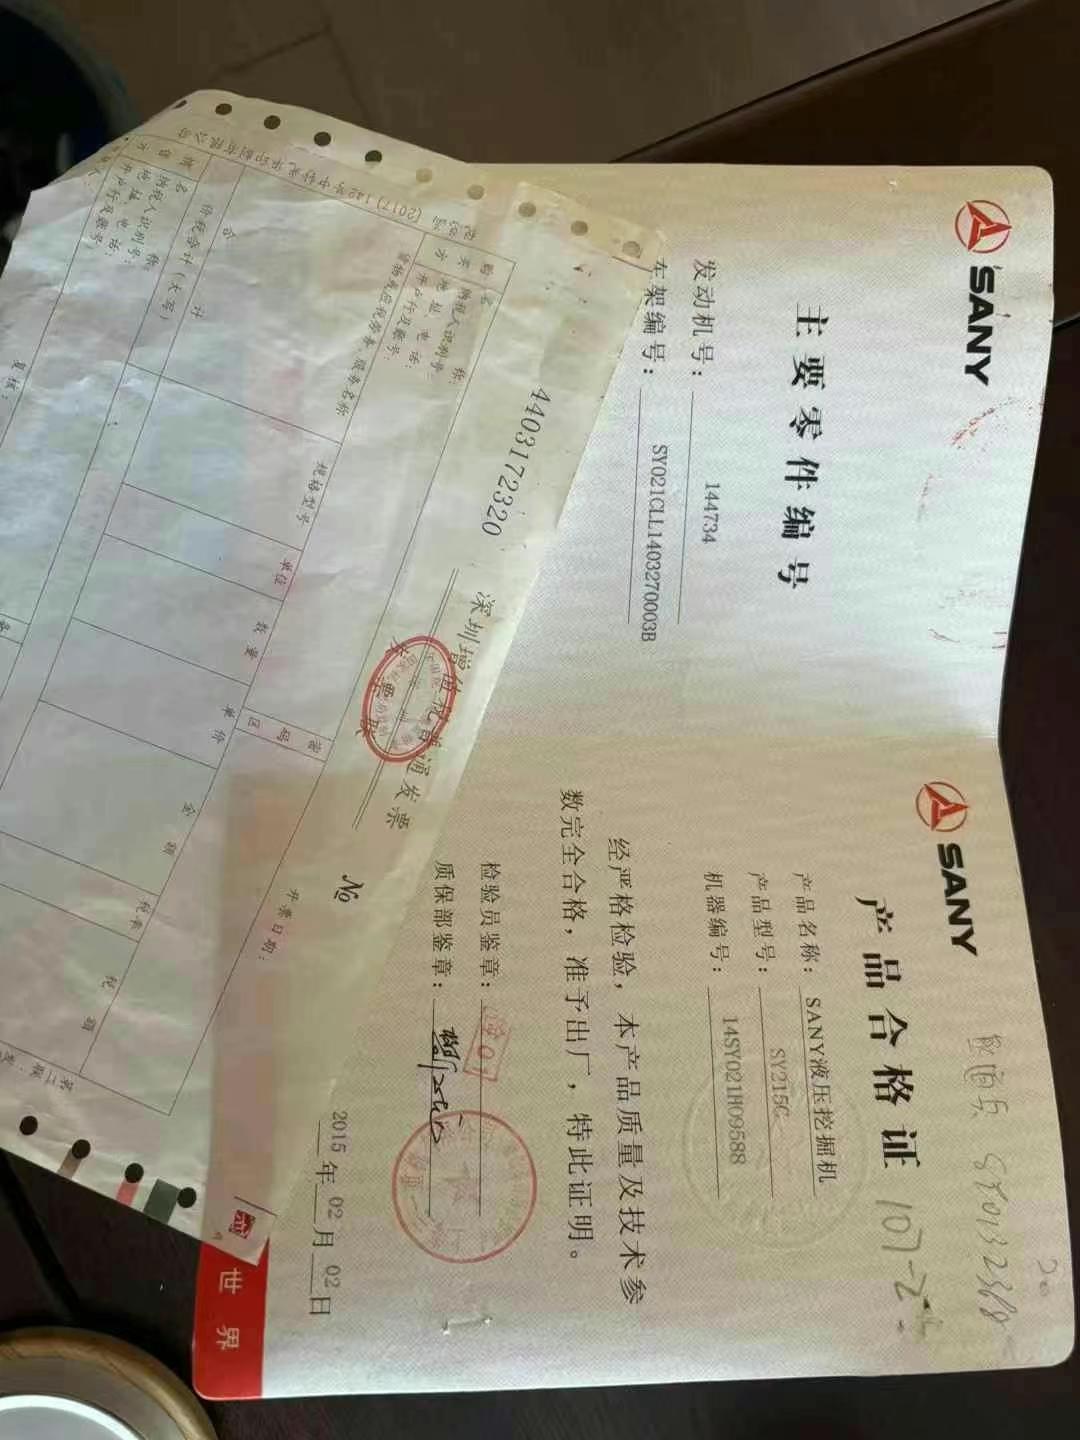 SANY
主要零件编号
发动机号：144734
车架编号：SY021CLL1403270003B
SANY
产品合格证
产品名称：SANY液压挖掘机
产品型号：SY215C
机器编号：14SY021H09588
经严格检验，本产品质量及技术参
数完全合格，准予出厂，特此证明。
检验员鉴章：
质保部鉴章：
2015年02月02日
世界
107-2
4403172320
深圳增值税普通发票
发票联
№
开票日期：
名称：
纳税人识别号：
地址、电话：
开户行及账号：
货物或应税劳务、服务名称
规格型号
单位
数量
单价
金额
税率
税额
合计
价税合计（大写）
名称：
纳税人识别号：
地址、电话：
开户行及账号：
复核：